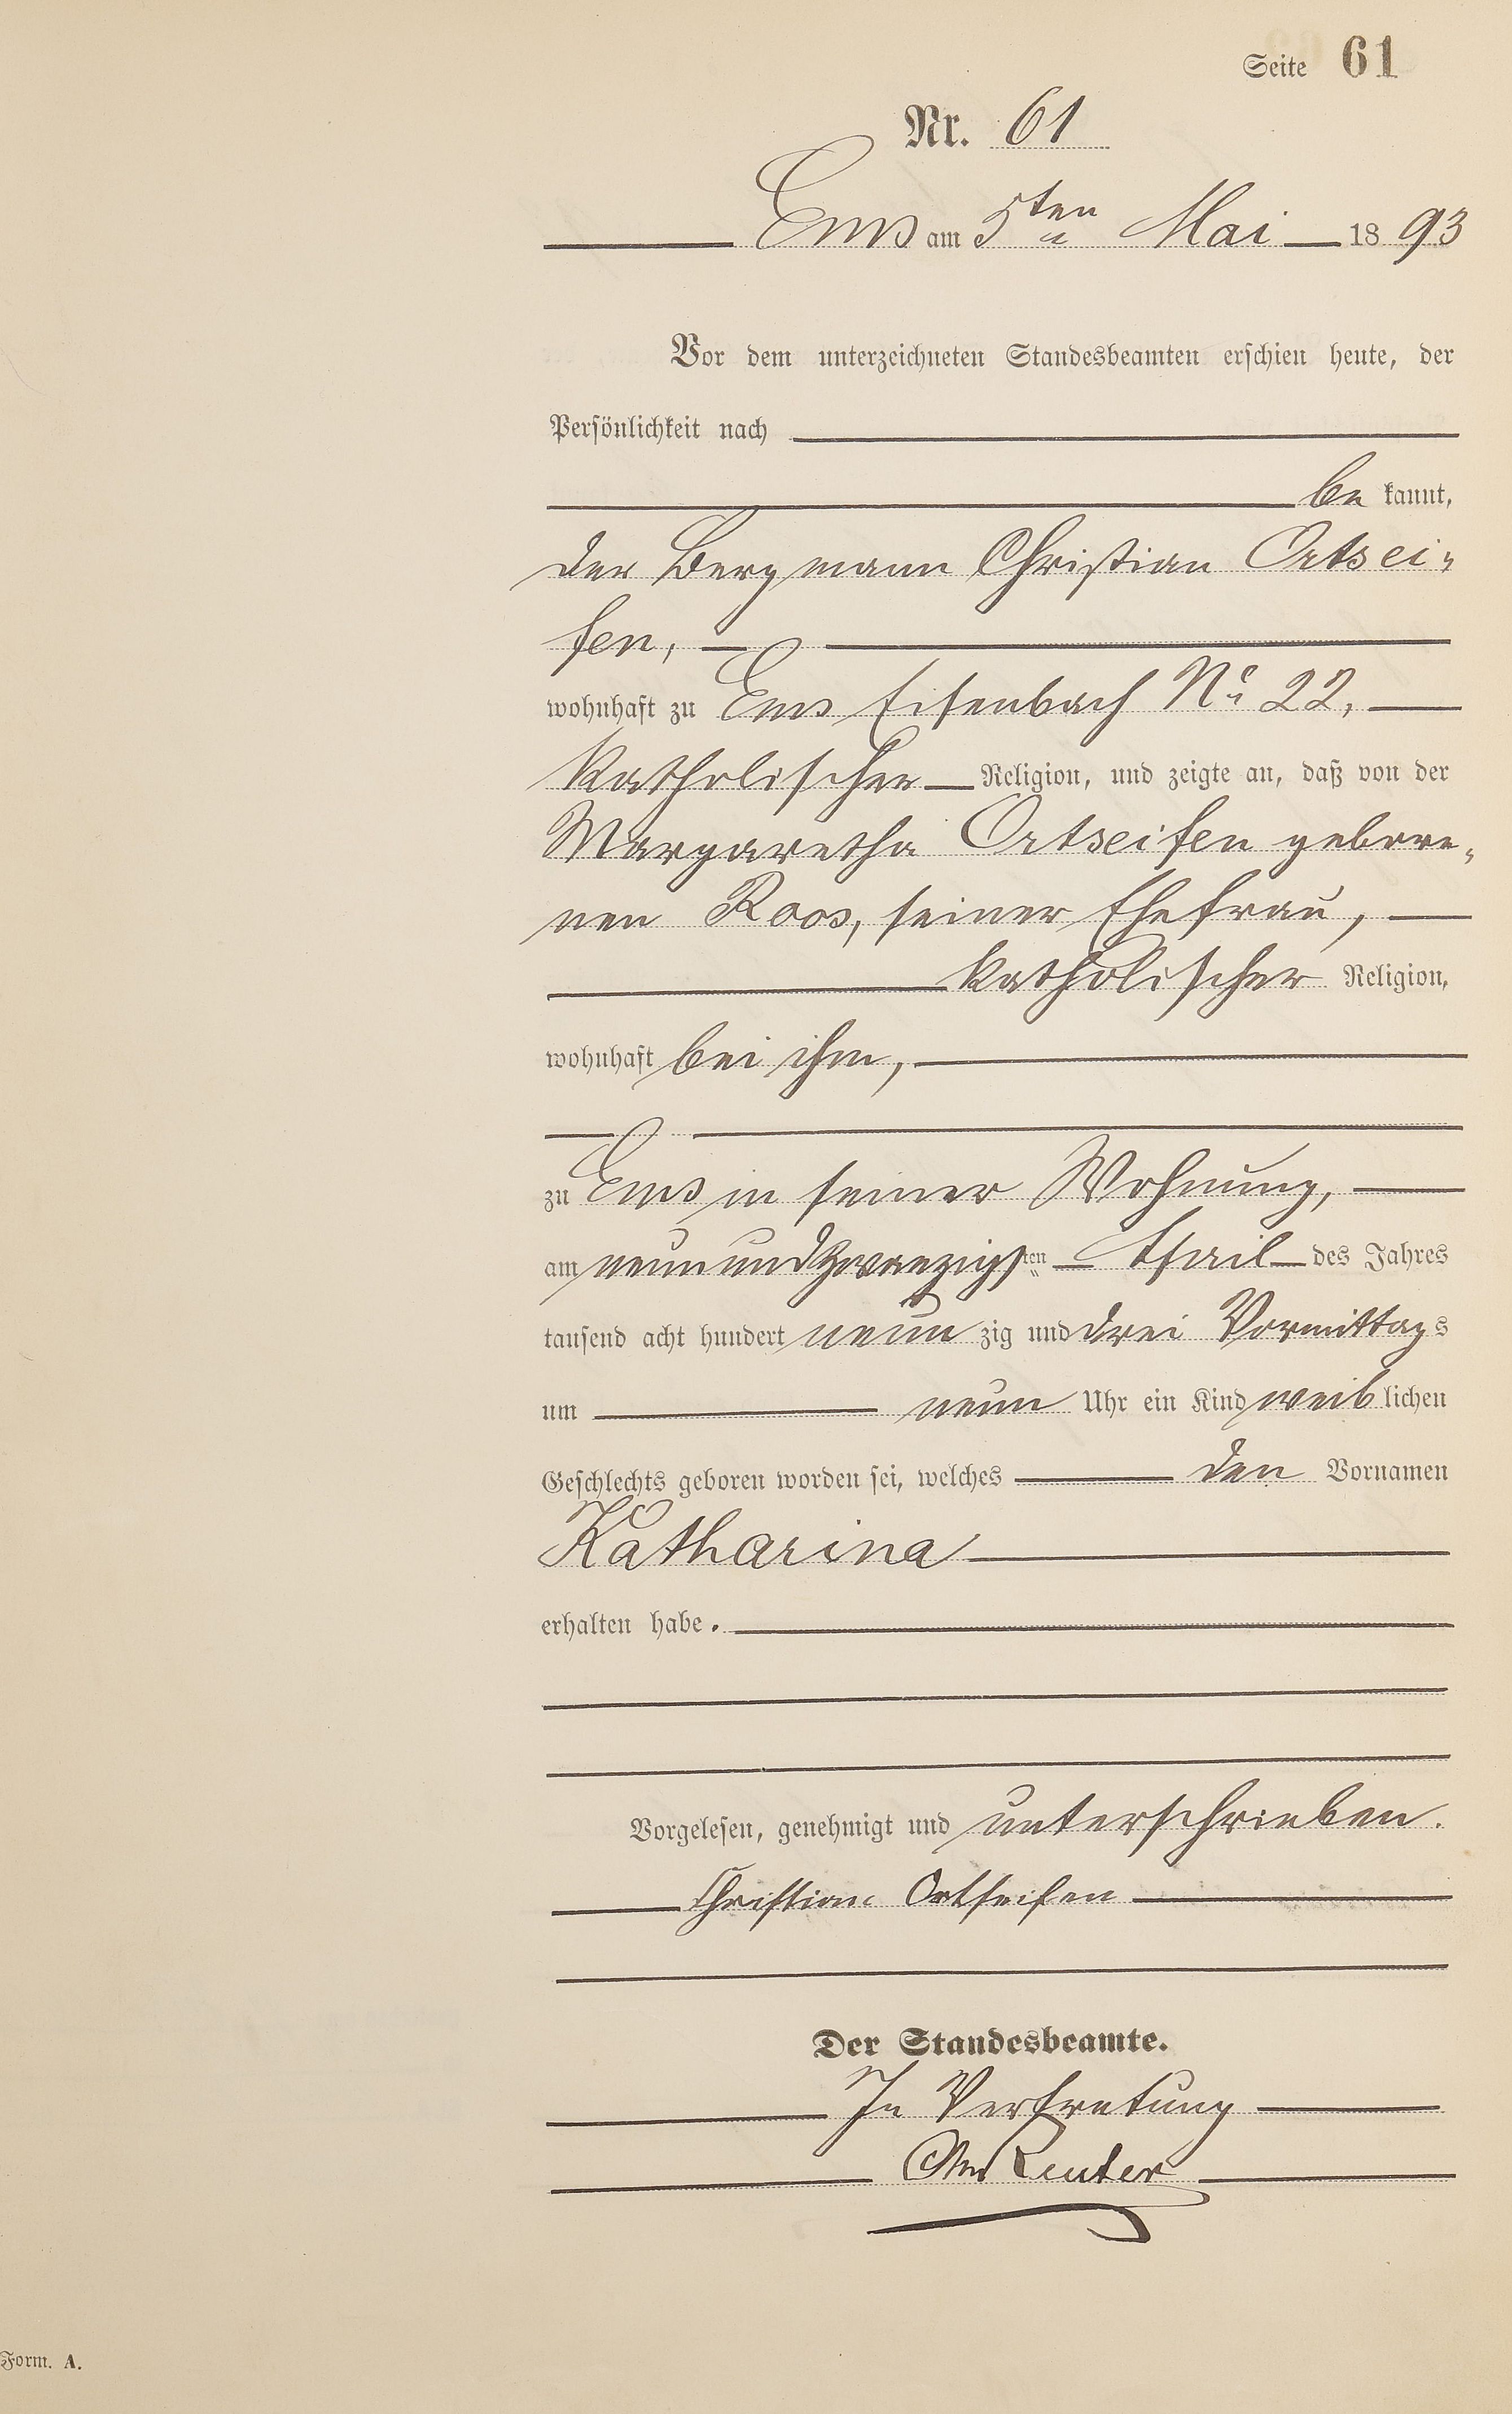 Seite 61
Nr. 61
Ems am 5ten Mai 1893
Vor dem unterzeichneten Standesbeamten erschien heute, der
Persönlichkeit nach
be kannt,
der Bergmann Christian Ortsei-
fen,
wohnhaft zu Ems Eisenbach No 22,
katholischer Religion, und zeigte an, daß von der
Margaretha Ortseifen gebore-
nen Roos, seiner Ehefrau,
katholischer Religion,
wohnhaft bei ihm,
zu Ems in seiner Wohnung,
am neunundzwanzigsten April des Jahres
tausend acht hundert neun zig und drei Vormittags
um neun Uhr ein Kind weib lichen
Geschlechts geboren worden sei, welches den Vornamen
Katharina
erhalten habe.
Vorgelesen, genehmigt und unterschrieben.
Christian Ortseifen
Der Standesbeamte.
In Vertretung
Reuter
Form. A.